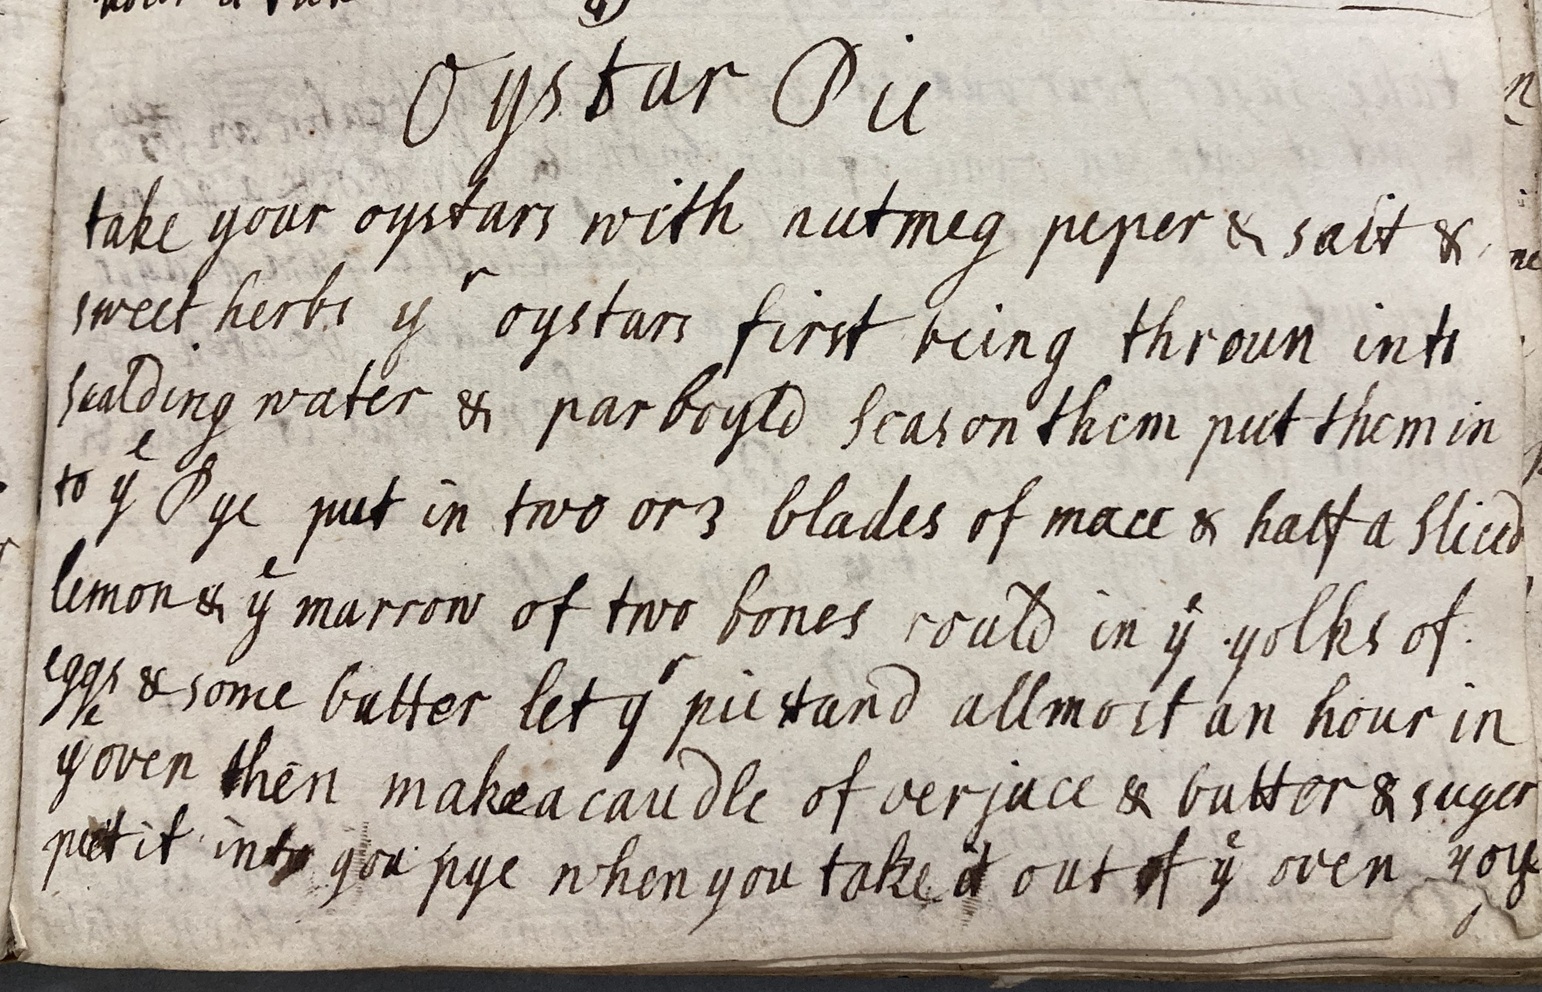 Oystar Pie
take your oystars with nutmeg peper & salt &
sweet herbs yr oystars first being throun into
scalding water & parboyld season them put them in
to ye Pye put in two or 3 blades of mace & half a sliced
lemon & ye marrow of two bones rould in ye yolks of
eggs & some butter let yr pie stand allmost an hour in
ye oven then make a caudle of verjuce & butter & suger
put it into you pye when you take it out of ye oven